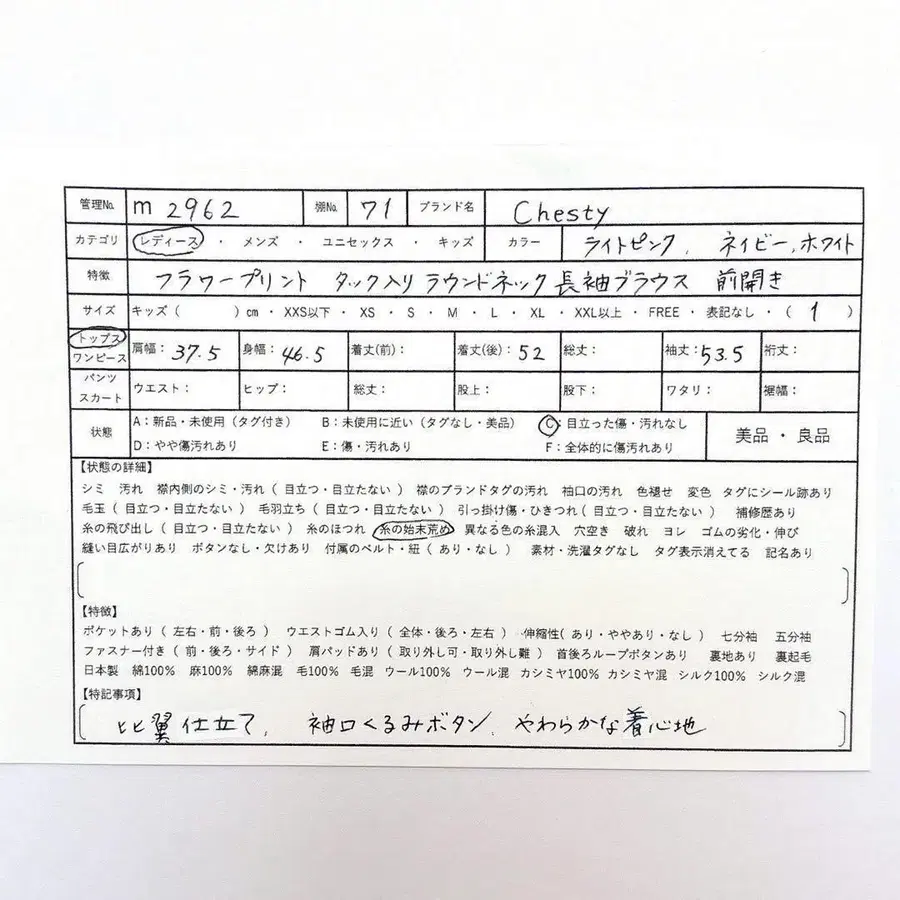 管理No. m 2962 棚No. 71 ブランド名 Chesty
カテゴリ レディース ・ メンズ ・ ユニセックス ・ キッズ カラー ライトピンク, ネイビー, ホワイト
特徴 フラワープリント タック入り ラウンドネック 長袖ブラウス 前開き
サイズ キッズ ( ) cm ・ XXS以下 ・ XS ・ S ・ M ・ L ・ XL ・ XXL以上 ・ FREE ・ 表記なし ・ ( 1 )
トップス
ワンピース 肩幅: 37.5 身幅: 46.5 着丈(前): 着丈(後): 52 総丈: 袖丈: 53.5 裄丈:
パンツ
スカート ウエスト: ヒップ: 総丈: 股上: 股下: ワタリ: 裾幅:
状態 A:新品・未使用(タグ付き) B:未使用に近い(タグなし・美品) C:目立った傷・汚れなし 美品 ・ 良品
D:やや傷汚れあり E:傷・汚れあり F:全体的に傷汚れあり
【状態の詳細】
シミ 汚れ 襟内側のシミ・汚れ ( 目立つ・目立たない ) 襟のブランドタグの汚れ 袖口の汚れ 色褪せ 変色 タグにシール跡あり
毛玉 ( 目立つ・目立たない ) 毛羽立ち ( 目立つ・目立たない ) 引っ掛け傷・ひきつれ ( 目立つ・目立たない ) 補修歴あり
糸の飛び出し ( 目立つ・目立たない ) 糸のほつれ 糸の始末荒め 異なる色の糸混入 穴空き 破れ ヨレ ゴムの劣化・伸び
縫い目広がりあり ボタンなし・欠けあり 付属のベルト・紐 ( あり・なし ) 素材・洗濯タグなし タグ表示消えてる 記名あり
【特徴】
ポケットあり ( 左右・前・後ろ ) ウエストゴム入り ( 全体・後ろ・左右 ) 伸縮性( あり・ややあり・なし ) 七分袖 五分袖
ファスナー付き ( 前・後ろ・サイド ) 肩パッドあり ( 取り外し可・取り外し難 ) 首後ろループボタンあり 裏地あり 裏起毛
日本製 綿100% 麻100% 綿麻混 毛100% 毛混 ウール100% ウール混 カシミヤ100% カシミヤ混 シルク100% シルク混
【特記事項】
比翼仕立て, 袖口くるみボタン, やわらかな着心地